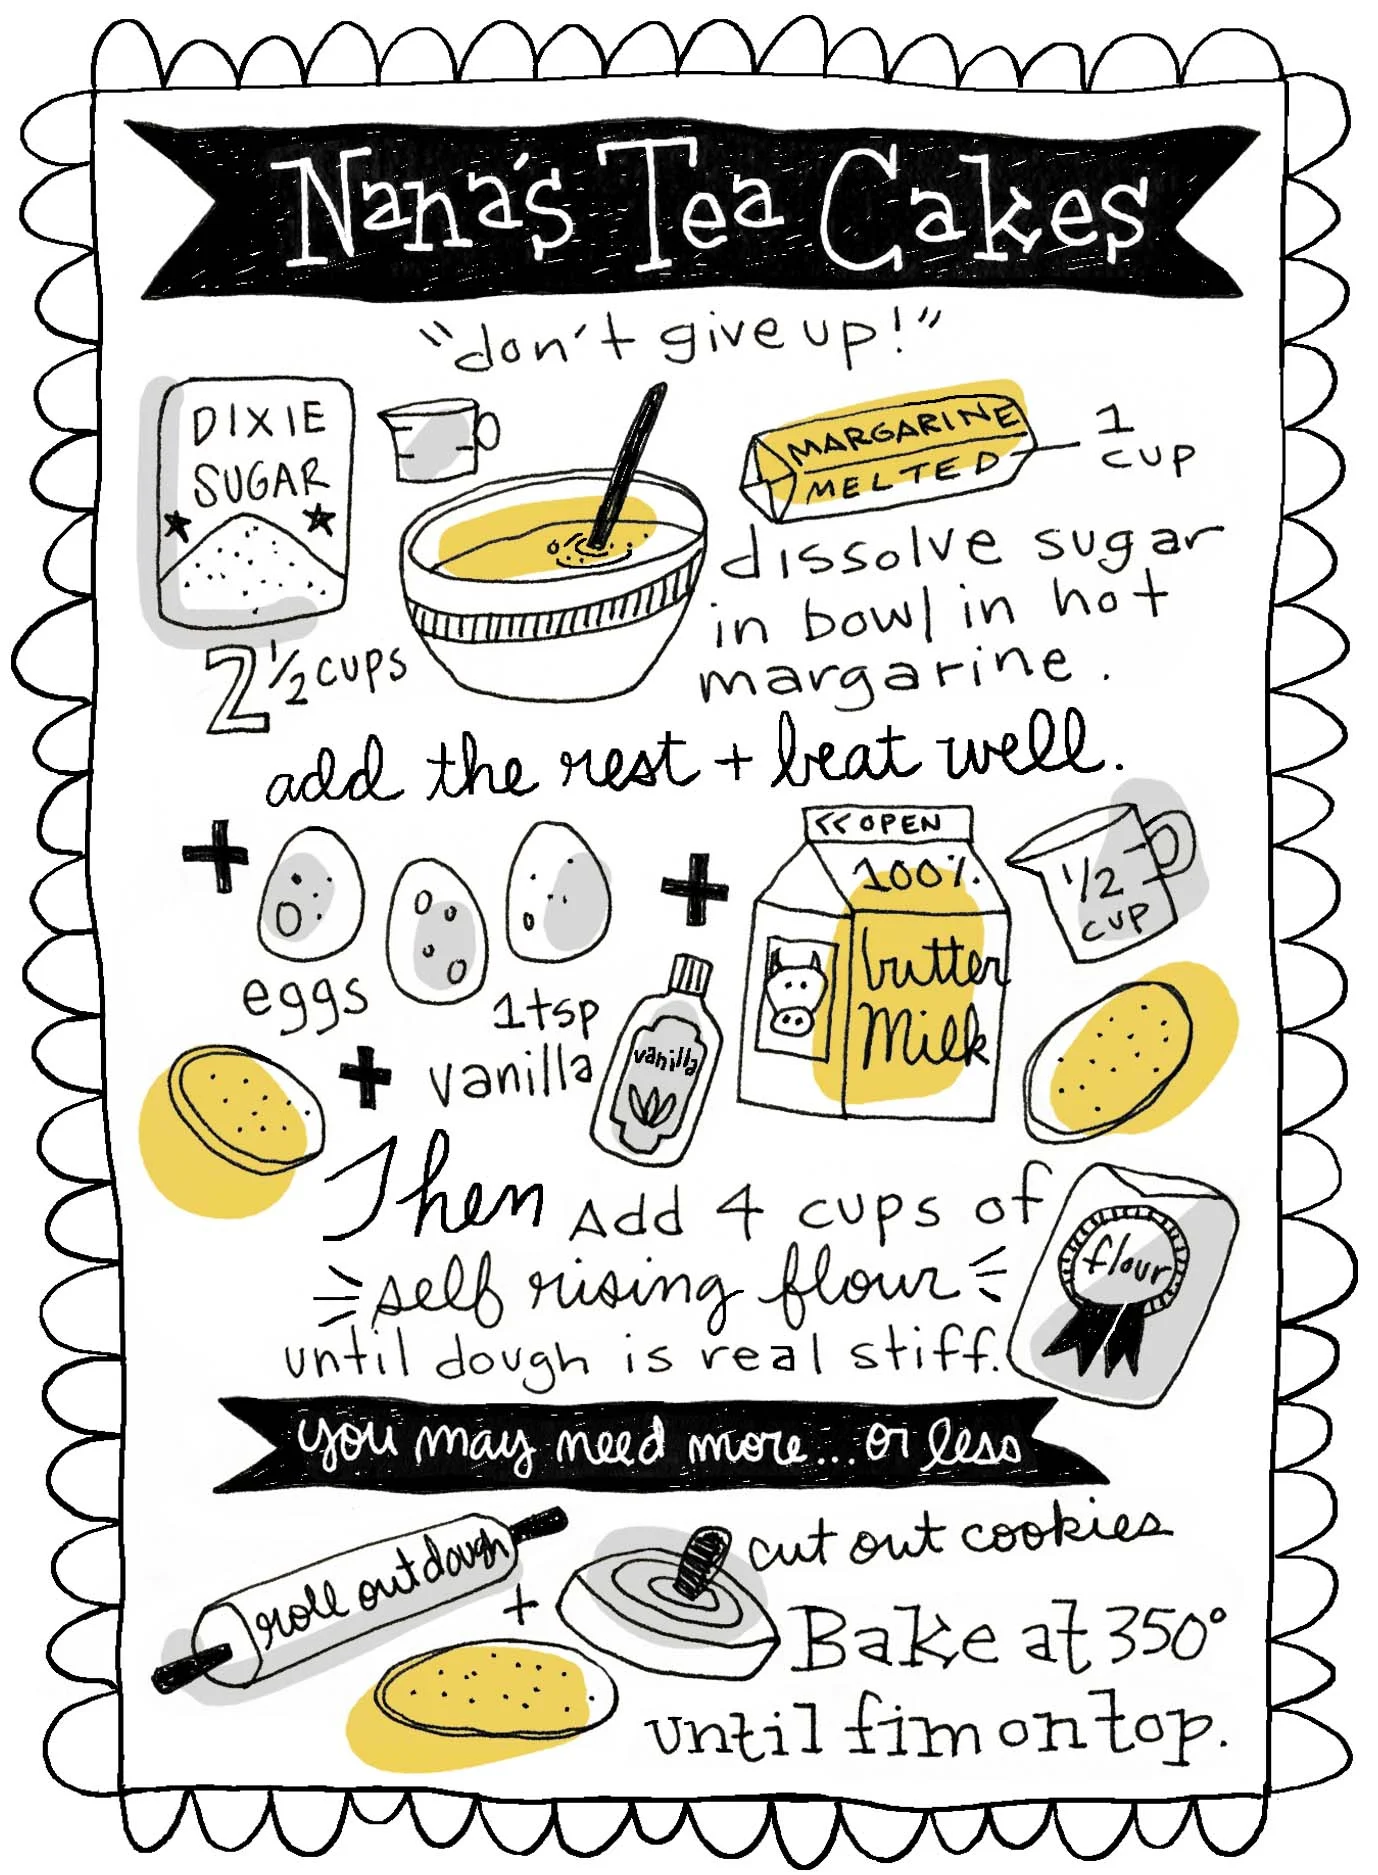 Nana's Tea Cakes
"don't give up!"
DIXIE
SUGAR
2 1/2 cups
MARGARINE
MELTED
1
cup
dissolve sugar
in bowl in hot
margarine.
add the rest + beat well.
+
eggs
+
<< OPEN
100%
butter
Milk
1/2
cup
+
1 tsp
vanilla
vanilla
Then Add 4 cups of
self rising flour
until dough is real stiff.
flour
you may need more... or less
roll out dough
+
cut out cookies
Bake at 350°
until fim on top.